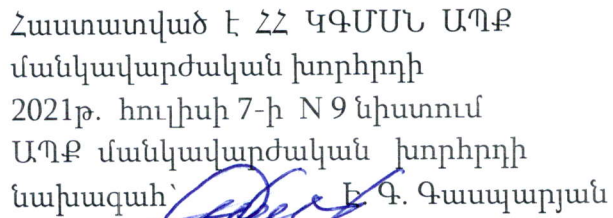 Հաստատված է ՀՀ ԿԳՄՍՆ ԱՊՔ
մանկավարժական խորհրդի
2021թ. հուլիսի 7-ի N 9 նիստում
ԱՊՔ մանկավարժական խորհրդի
նախագահ՝ Է Գ. Գասպարյան